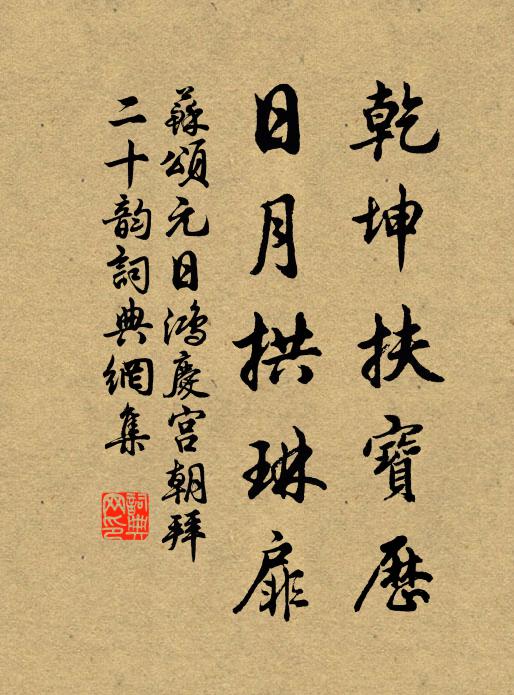 乾坤扶寶歷
日月拱琳扉
蘇頌元日鴻慶宮朝拜
二十韵詞典網集
詞典網印